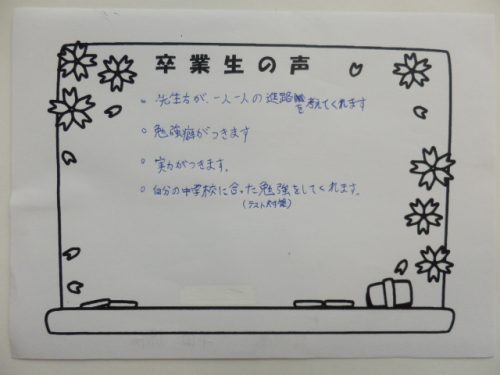 卒業生の声
○ 先生方が、一人一人の進路を考えてくれます
○ 勉強癖がつきます
○ 実力がつきます。
○ 自分の中学校に合った勉強をしてくれます。
(テスト対策)